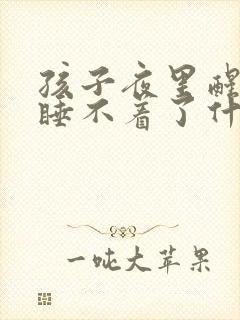 孩子夜里醒
睡不着了什
一吨大苹果